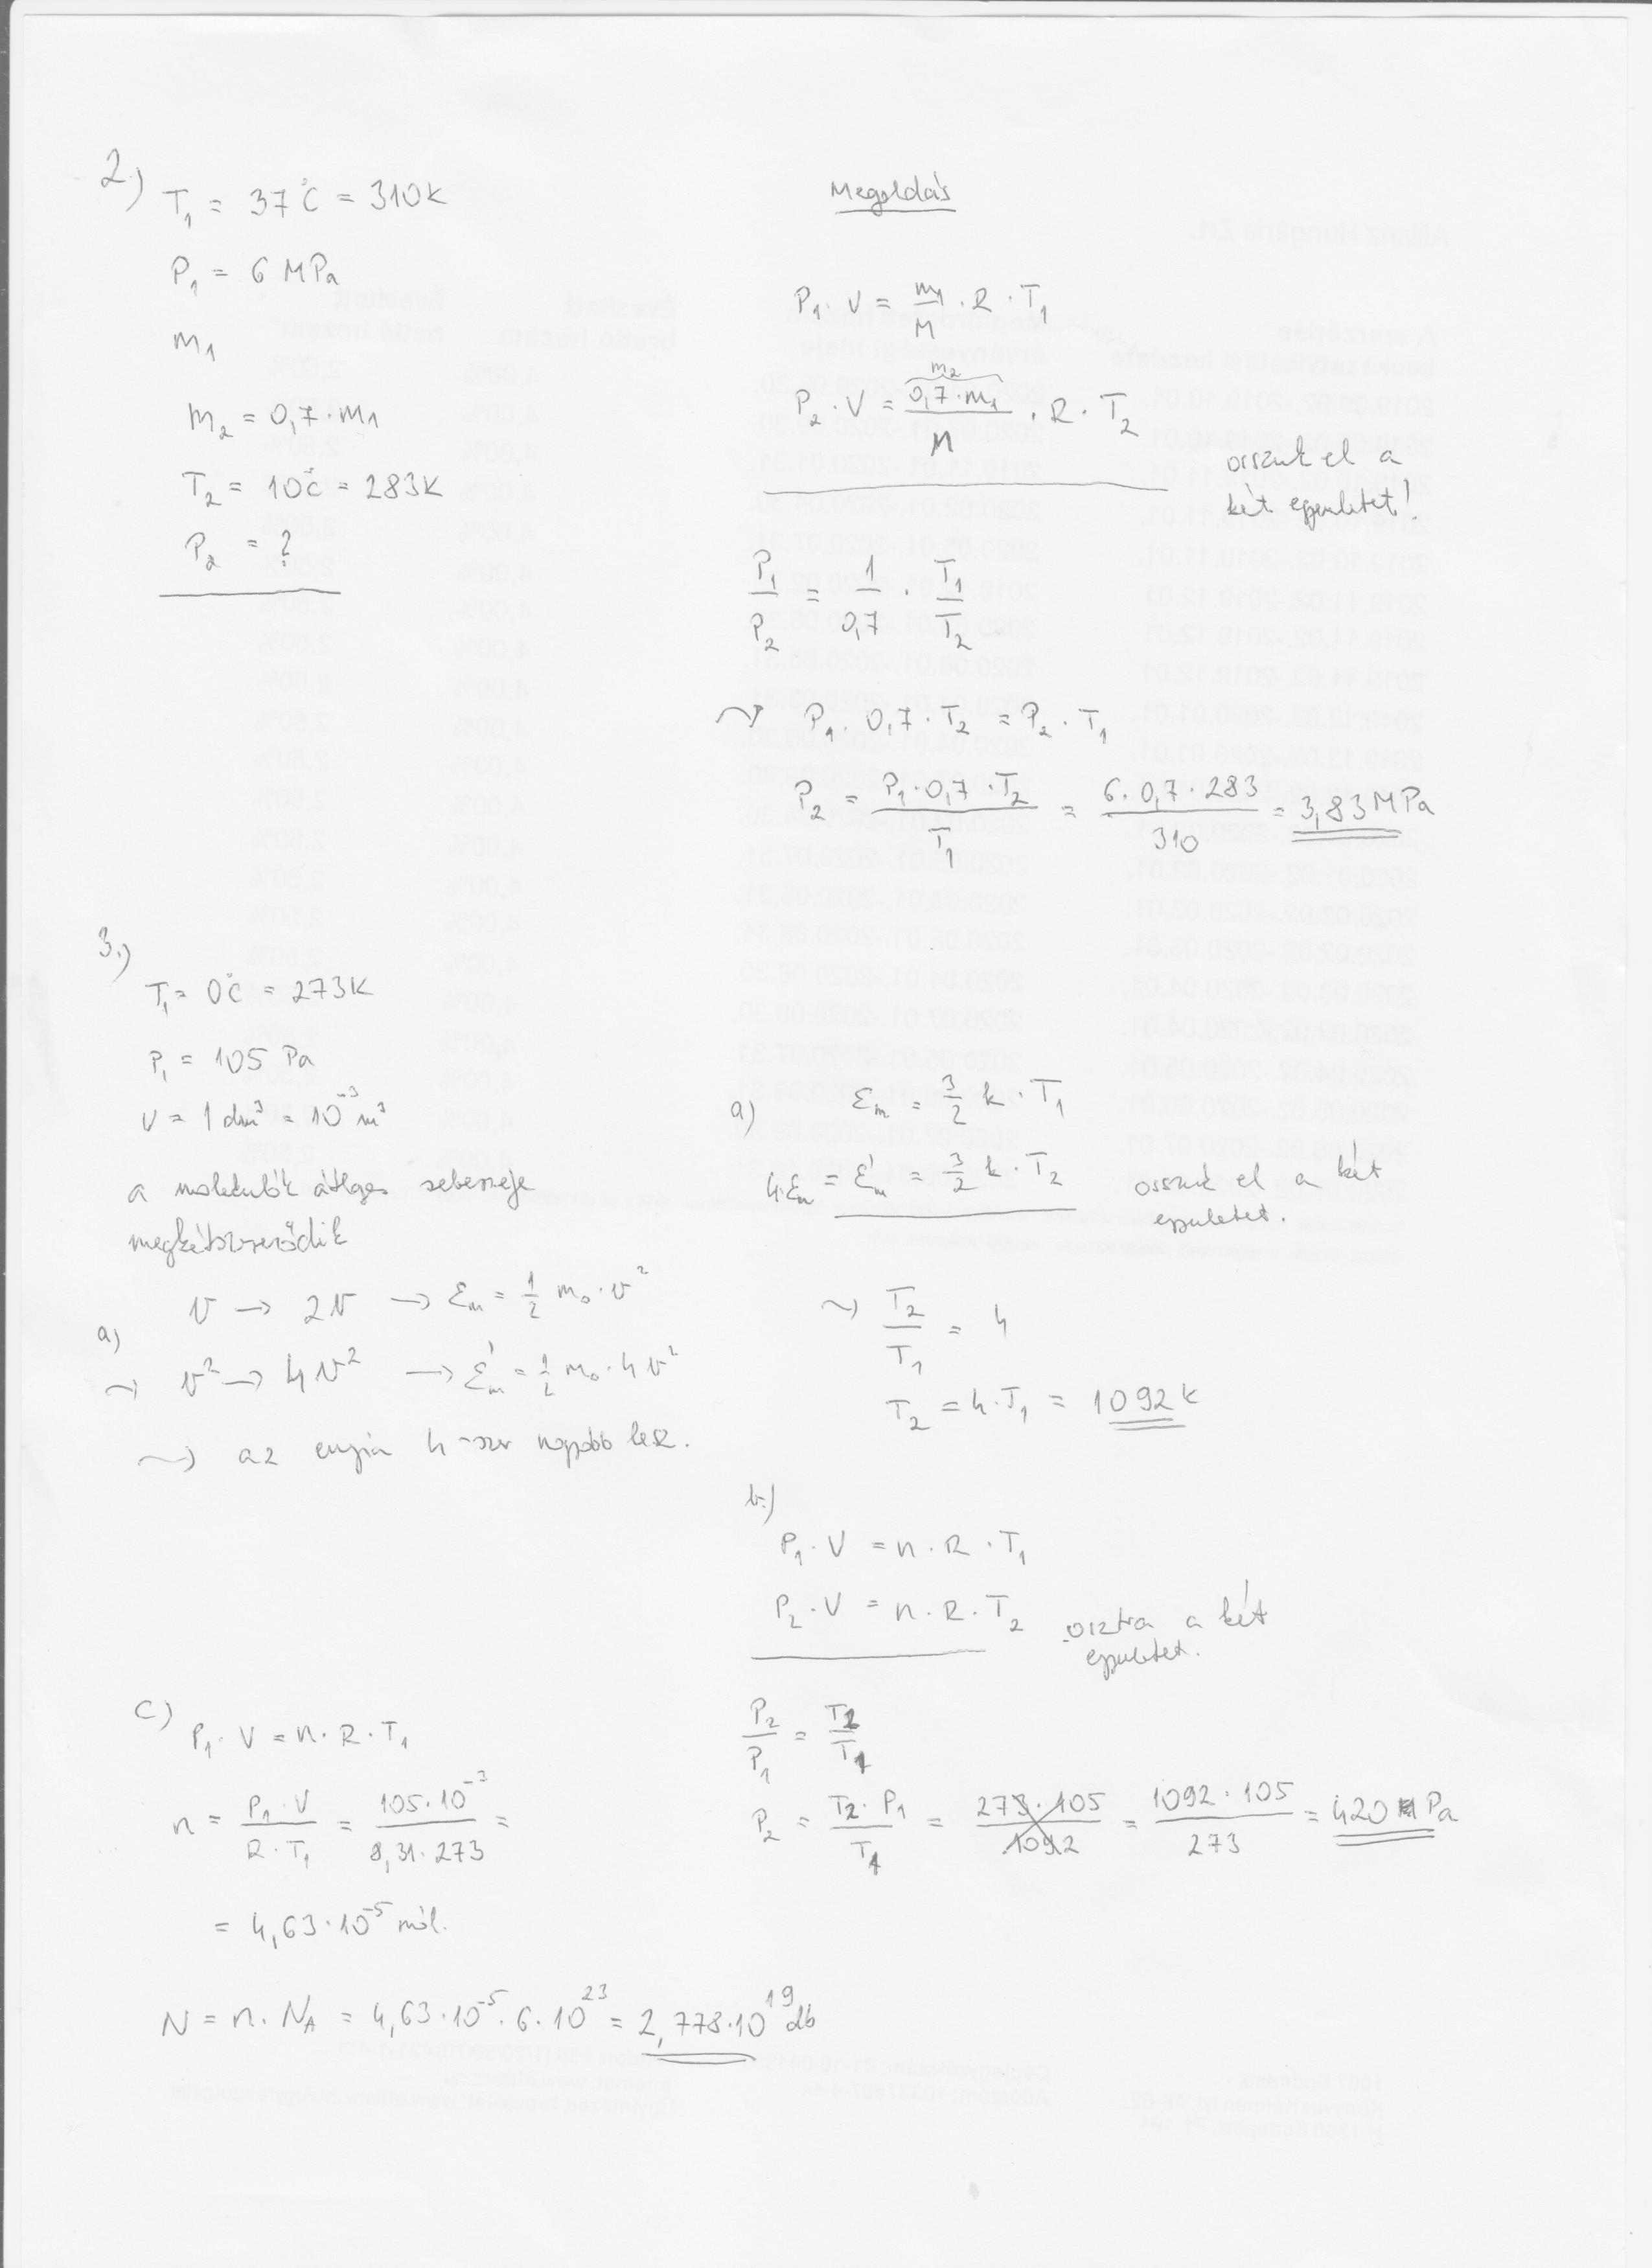 2.)
T₁ = 37°C = 310K
P₁ = 6 MPa
m₁
m₂ = 0,7·m₁
T₂ = 10°C = 283K
P₂ = ?
Megoldás
P₁·V = m₁/M · R · T₁
P₂·V = (0,7·m₁)/M · R · T₂
m₂
osszuk el a
két egyenletet!
P₁/P₂ = 1/0,7 · T₁/T₂
~> P₁·0,7·T₂ = P₂·T₁
P₂ = (P₁·0,7·T₂)/T₁ = (6·0,7·283)/310 = 3,83 MPa
3.)
T₁ = 0°C = 273K
P₁ = 105 Pa
V = 1 dm³ = 10⁻³ m³
a molekulák átlagos sebessége
megkétszereződik
a)
v → 2v → εₘ = 1/2 m₀·v²
~> v² → 4v² → ε'ₘ = 1/2 m₀·4v²
~> az energia 4-szer nagyobb lesz.
a)
εₘ = 3/2 k·T₁
4·εₘ = ε'ₘ = 3/2 k·T₂
osszuk el a két
egyenletet.
~> T₂/T₁ = 4
T₂ = 4·T₁ = 1092 K
b.)
P₁·V = n·R·T₁
P₂·V = n·R·T₂
osztva a két
egyenletet.
P₂/P₁ = T₂/T₁
P₂ = (T₂·P₁)/T₁ = (273·105)/1092 = (1092·105)/273 = 420 Pa
c)
P₁·V = n·R·T₁
n = (P₁·V)/(R·T₁) = (105·10⁻³)/(8,31·273) =
= 4,63·10⁻⁵ mól.
N = n·N_A = 4,63·10⁻⁵·6·10²³ = 2,778·10¹⁹ db